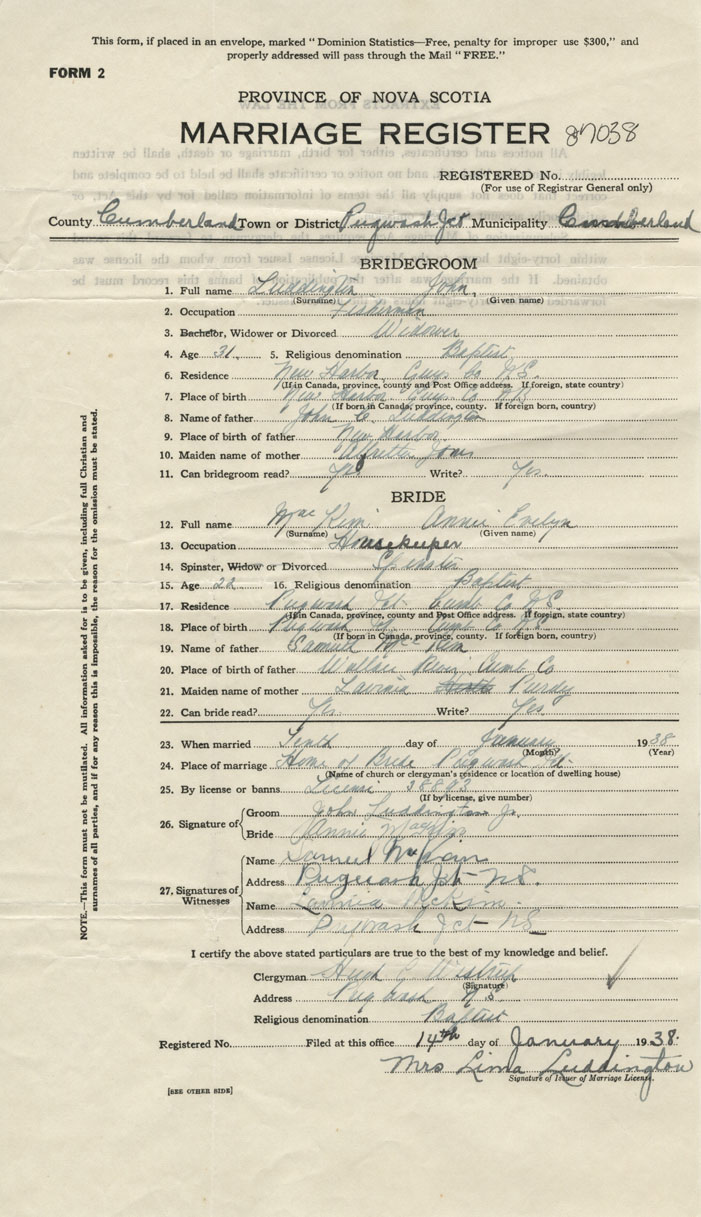 This form, if placed in an envelope, marked "Dominion Statistics—Free, penalty for improper use $300," and
properly addressed will pass through the Mail "FREE."
FORM 2
PROVINCE OF NOVA SCOTIA
MARRIAGE REGISTER 87038
REGISTERED No.
(For use of Registrar General only)
County Cumberland Town or District Pugwash Jct Municipality Cumberland
BRIDEGROOM
1. Full name Luddington John
(Surname) (Given name)
2. Occupation Fisherman
3. Bachelor, Widower or Divorced Widower
4. Age 31 5. Religious denomination Baptist
6. Residence New Harbor Guys Co N.S.
(If in Canada, province, county and Post Office address. If foreign, state country)
7. Place of birth New Harbor Guys Co N.S.
(If born in Canada, province, county. If foreign born, country)
8. Name of father John C. Luddington
9. Place of birth of father New Harbor
10. Maiden name of mother Jones
11. Can bridegroom read? Yes Write? Yes.
BRIDE
12. Full name MacKim Annie Evelyn
(Surname) (Given name)
13. Occupation Housekeeper
14. Spinster, Widow or Divorced Spinster
15. Age 22 16. Religious denomination Baptist
17. Residence Pugwash Jct. Cumb Co N.S.
(If in Canada, province, county and Post Office address. If foreign, state country)
18. Place of birth Pugwash Jct. Cumb Co N.S.
(If born in Canada, province, county. If foreign born, country)
19. Name of father Samuel MacKim
20. Place of birth of father Wallace River Cumb Co
21. Maiden name of mother Lavinia Purdy
22. Can bride read? Yes. Write? Yes.
23. When married Tenth day of January 1938
(Month) (Year)
24. Place of marriage Home of Bride Pugwash Jct.
(Name of church or clergyman's residence or location of dwelling house)
25. By license or banns License 38893
(If by license, give number)
26. Signature of Groom John Luddington Jr.
Bride Annie MacKim
27. Signatures of Witnesses Name Samuel McKim
Address Pugwash Jct- N.S.
Name Lavinia McKim
Address Pugwash Jct- NS
I certify the above stated particulars are true to the best of my knowledge and belief.
Clergyman Hugh
(Signature)
Address Pugwash N.S
Religious denomination Baptist
Registered No. Filed at this office 14th day of January 1938.
Mrs Lima Luddington
Signature of Issuer of Marriage License.
[SEE OTHER SIDE]
NOTE.—This form must not be mutilated. All information asked for is to be given, including full Christian and
surnames of all parties, and if for any reason this is impossible, the reason for the omission must be stated.